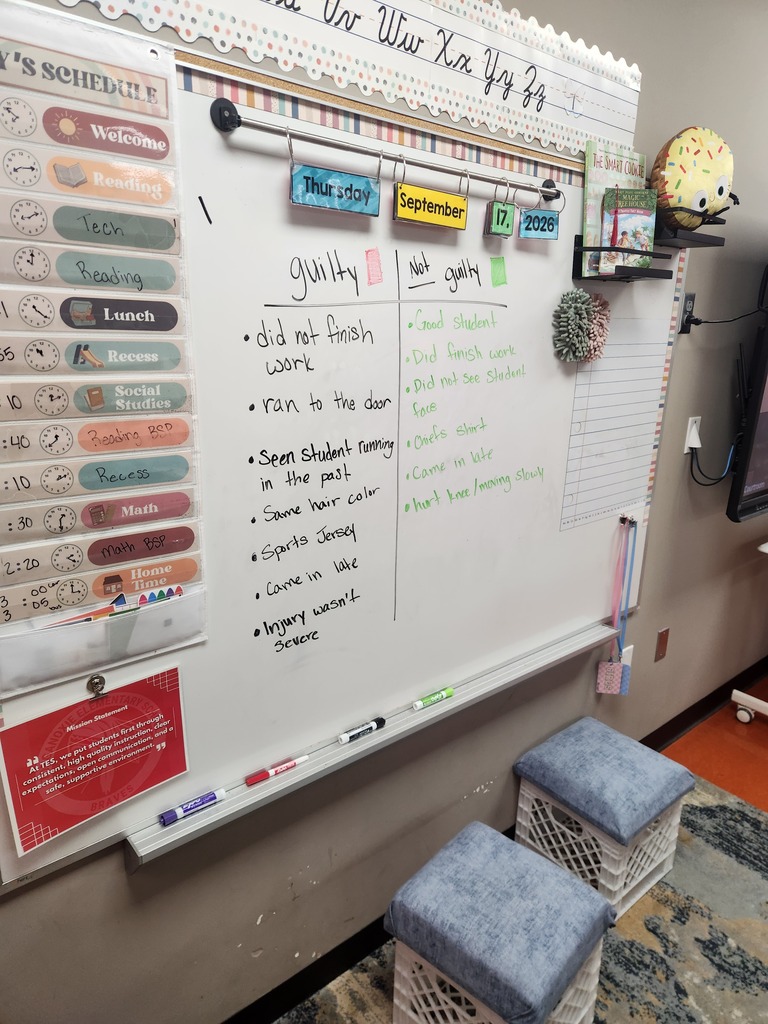 Uu Vv Ww Xx Yy Zz
Y'S SCHEDULE
Welcome
Reading
Tech
Reading
Lunch
55
Recess
10
Social
Studies
:40
Reading BSP
:10
Recess
:30
Math
2:20
Math BSP
3:00
3:05
Home
Time
Mission Statement
"At TES, we put students first through
consistent, high quality instruction, clear
expectations, open communication, and a
safe, supportive environment."
BRAVES
Thursday
September
17,
2026
guilty
• did not finish
work
• ran to the door
• Seen student running
in the past
• Same hair color
• Sports Jersey
• Came in late
• Injury wasn't
severe
Not guilty
• Good student
• Did finish work
• Did not see student
face
• Chiefs shirt
• Came in late
• hurt knee/moving slowly
THE SMART COOKIE
MAGIC
TREE HOUSE